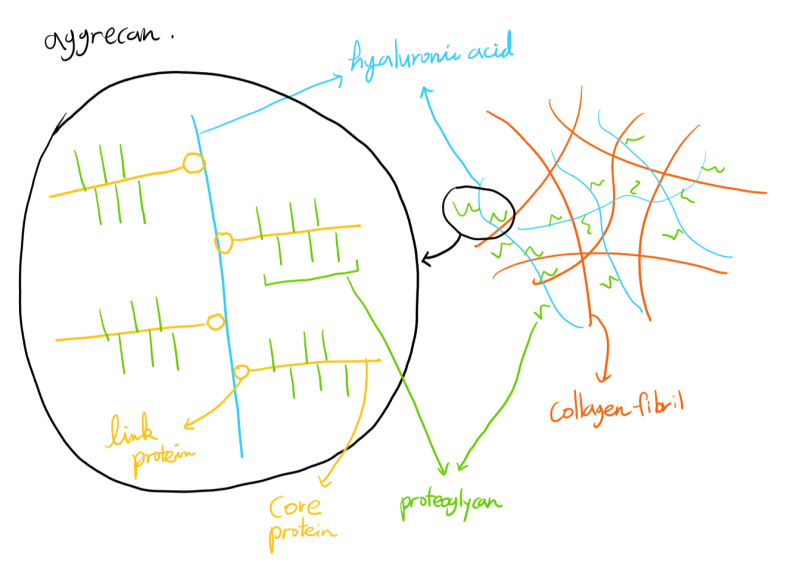 aggrecan.
hyaluronic acid
link
protein
Core
protein
proteoglycan
collagen fibril